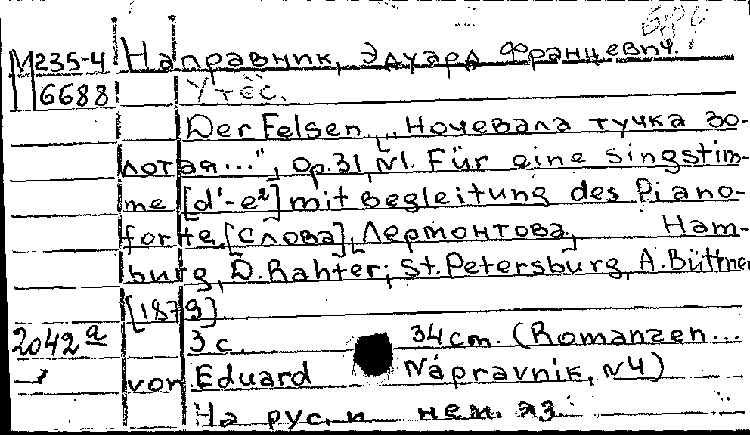 М235-4 Направник, Эдуард Францевич.
6688 Утёс.
Der Felsen. "Ночевала тучка зо-
лотая...", Op.31, N1. Für eine Singstim-
me [d'-e²] mit Begleitung des Piano-
forte. [Слова] Лермонтова. Ham-
burg, D. Rahter; St. Petersburg, A. Büttner
[1879].
2042а 3 с. 34 cm. (Romanzen...
von Eduard Nápravník, N4)
На рус. и нем. яз.